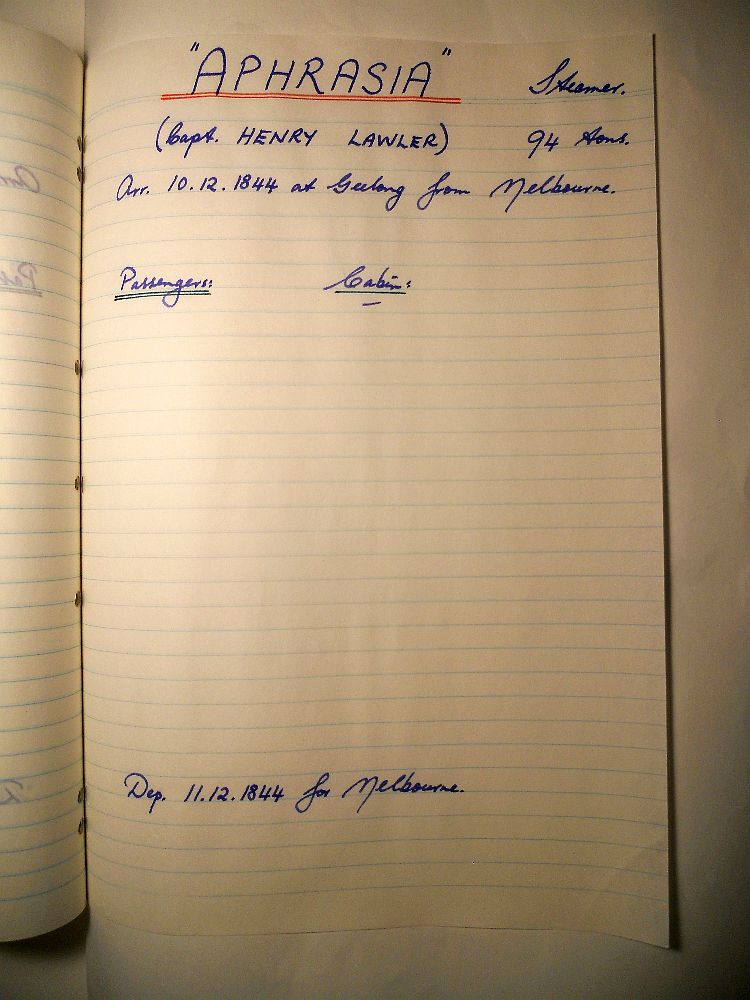 "APHRASIA" Steamer.
(Capt. HENRY LAWLER) 94 tons.
Arr. 10.12.1844 at Geelong from Melbourne.
Passengers: Cabin:
—
Dep. 11.12.1844 for Melbourne.